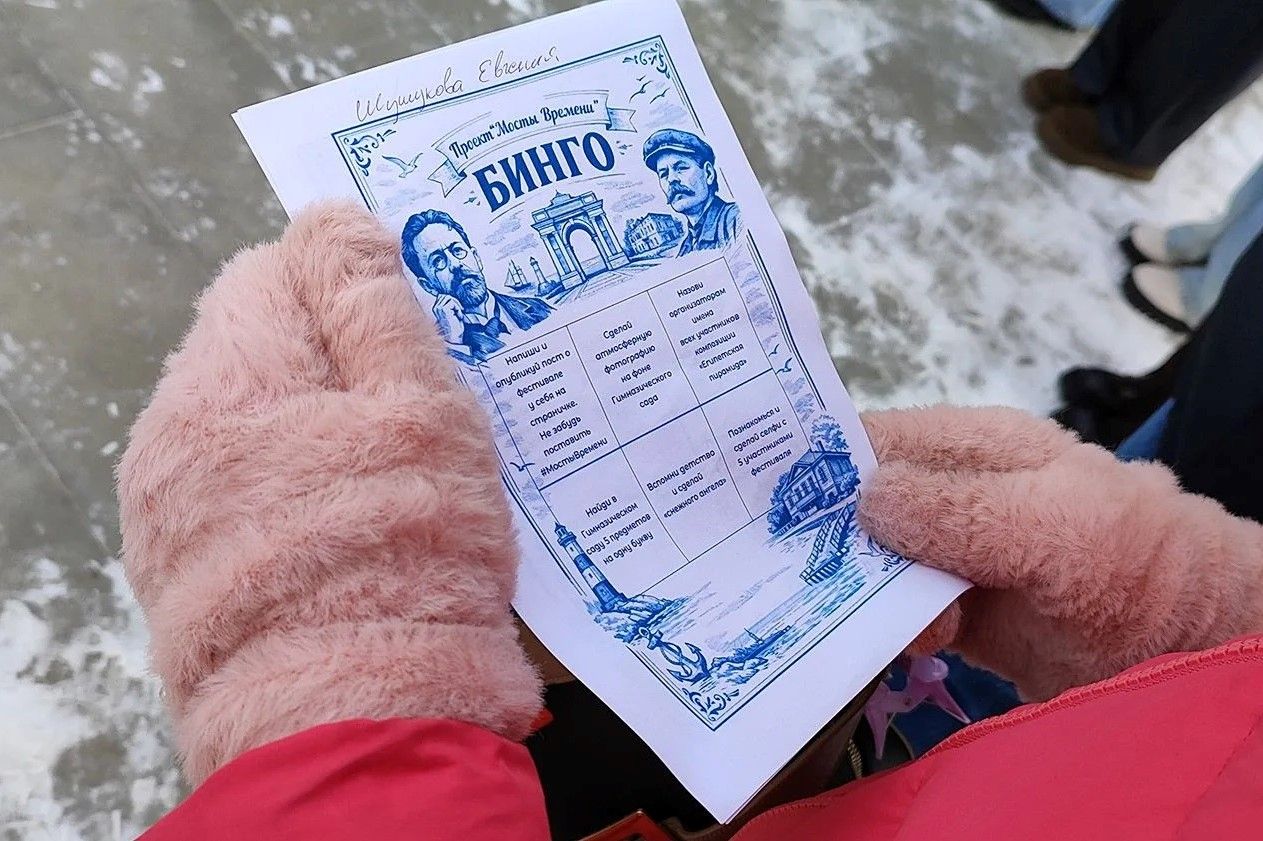 Шушукова Евгения
Проект "Мосты Времени"
БИНГО
Напиши и
опубликуй пост о
фестивале
у себя на
страничке.
Не забудь
поставить
#МостыВремени
Сделай
атмосферную
фотографию
на фоне
Гимназического
сада
Назови
организаторам
имена
всех участников
композиции
«Египетская
пирамида»
Найди в
Гимназическом
саду 5 предметов
на одну букву
Вспомни детство
и сделай
«снежного ангела»
Познакомься и
сделай селфи с
5 участниками
фестиваля